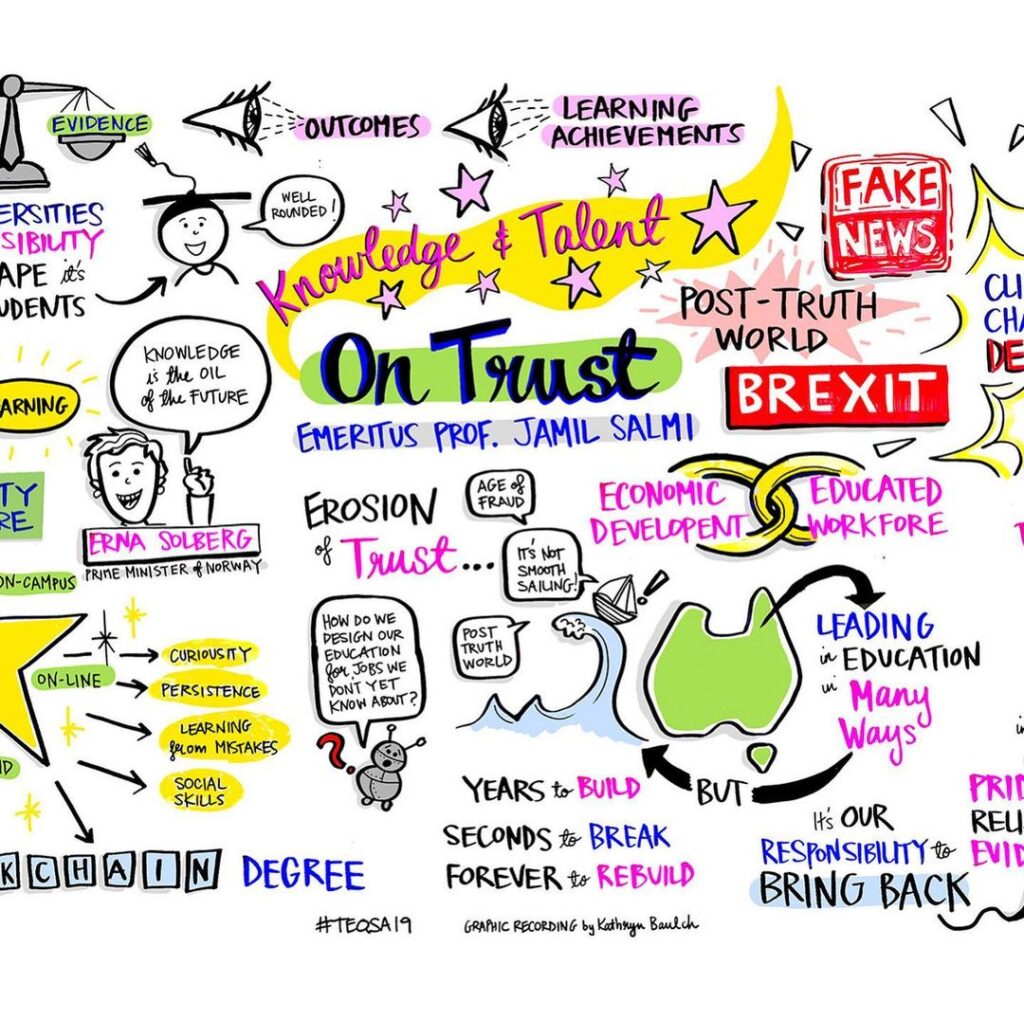 EVIDENCE
OUTCOMES
LEARNING
ACHIEVEMENTS
ERSITIES
SIBILITY
APE it's
UDENTS
WELL
ROUNDED!
Knowledge & Talent
On Trust
EMERITUS PROF. JAMIL SALMI
FAKE
NEWS
POST-TRUTH
WORLD
BREXIT
CLI
CHA
DE
KNOWLEDGE
is the OIL
of the FUTURE
ERNA SOLBERG
PRIME MINISTER of NORWAY
ARNING
TY
RE
ON-CAMPUS
ON-LINE
ID
CURIOSITY
PERSISTENCE
LEARNING
from MISTAKES
SOCIAL
SKILLS
KCHAIN DEGREE
EROSION
of Trust...
AGE of
FRAUD
IT'S NOT
SMOOTH
SAILING!
POST
TRUTH
WORLD
HOW DO WE
DESIGN OUR
EDUCATION
for JOBS WE
DON'T YET
KNOW ABOUT?
?
!
ECONOMIC
DEVELOPENT
EDUCATED
WORKFORE
LEADING
in EDUCATION
in Many
Ways
BUT
YEARS to BUILD
SECONDS to BREAK
FOREVER to REBUILD
It's OUR
RESPONSIBILITY to
BRING BACK
in
PRID
RELI
EVID
#TEQSA19
GRAPHIC RECORDING by Kathryn Baulch